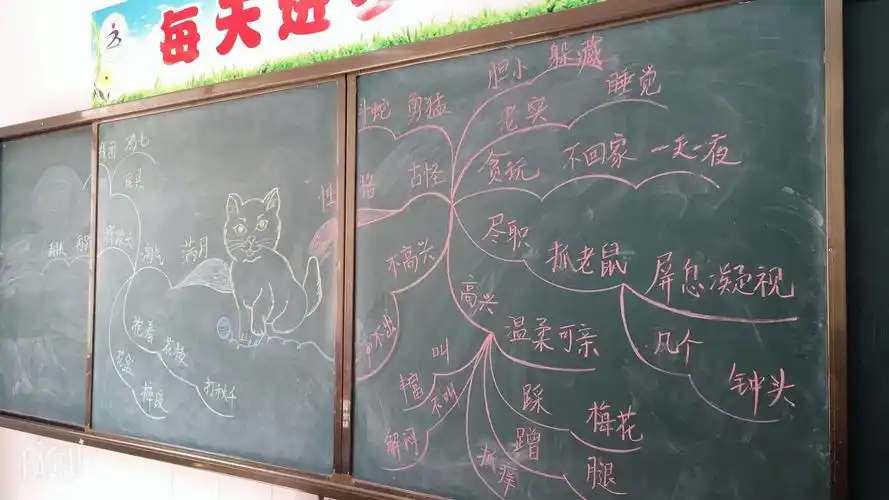 每天进步
胆小 躲藏
斗蛇 勇猛
老实 睡觉
性格 古怪
贪玩 不回家 一天一夜
尽职 抓老鼠 屏息凝视
几个 钟头
不高兴
高兴
温柔可亲
叫
不叫
解闷
踩 梅花
蹭 腿
抓痒
满月
淘气
抱着 花枝
打秋千